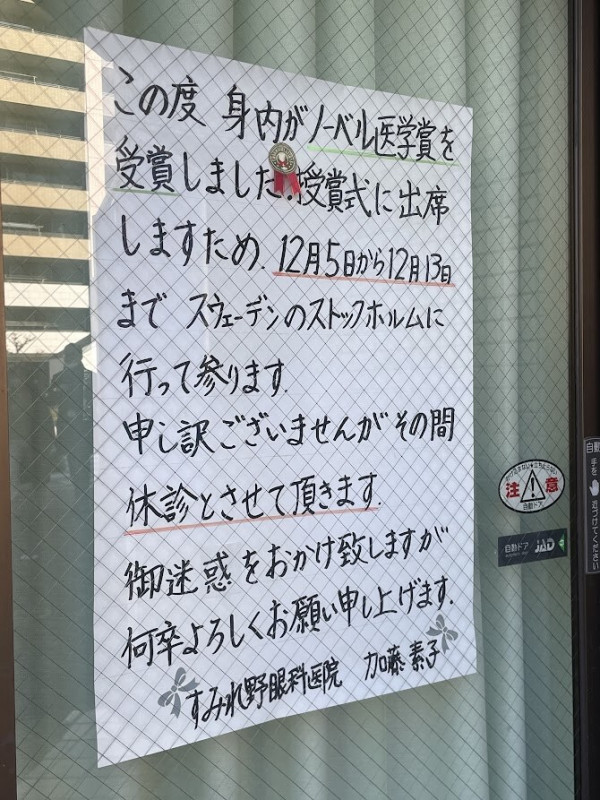 この度 身内がノーベル医学賞を
受賞しました.授賞式に出席
しますため.12月5日から12月13日
まで スウェーデンのストックホルムに
行って参ります.
申し訳ございませんが その間
休診とさせて頂きます.
御迷惑をおかけ致しますが
何卒よろしくお願い申し上げます.
すみれ野眼科医院 加藤 素子
注意
自動ドア
自動ドア JAD
自動
手を近づけてください